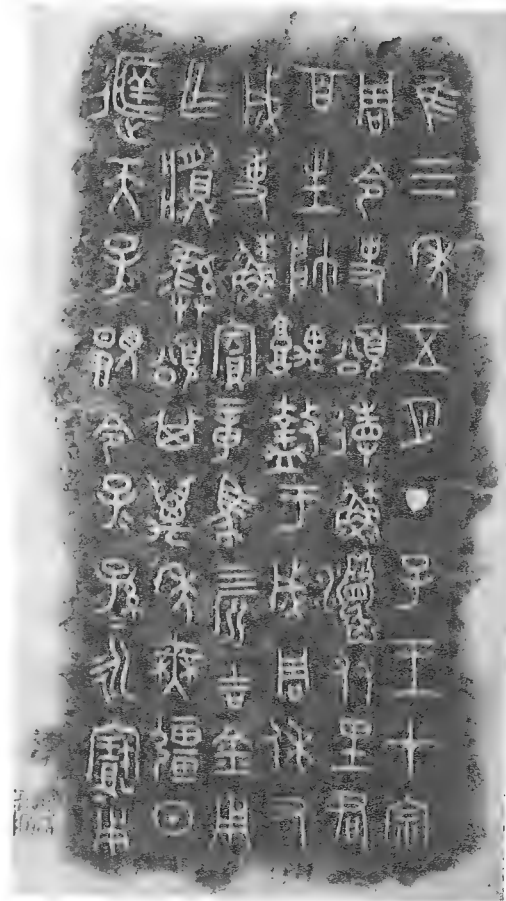 隹三年五月丁子王才宗
周令史頌省穌友里君
百生帥堣盩于成周休又
成事穌賓章馬四匹吉金用
乍彝頌其萬年無疆日
天子顯令子=孫=永寶用